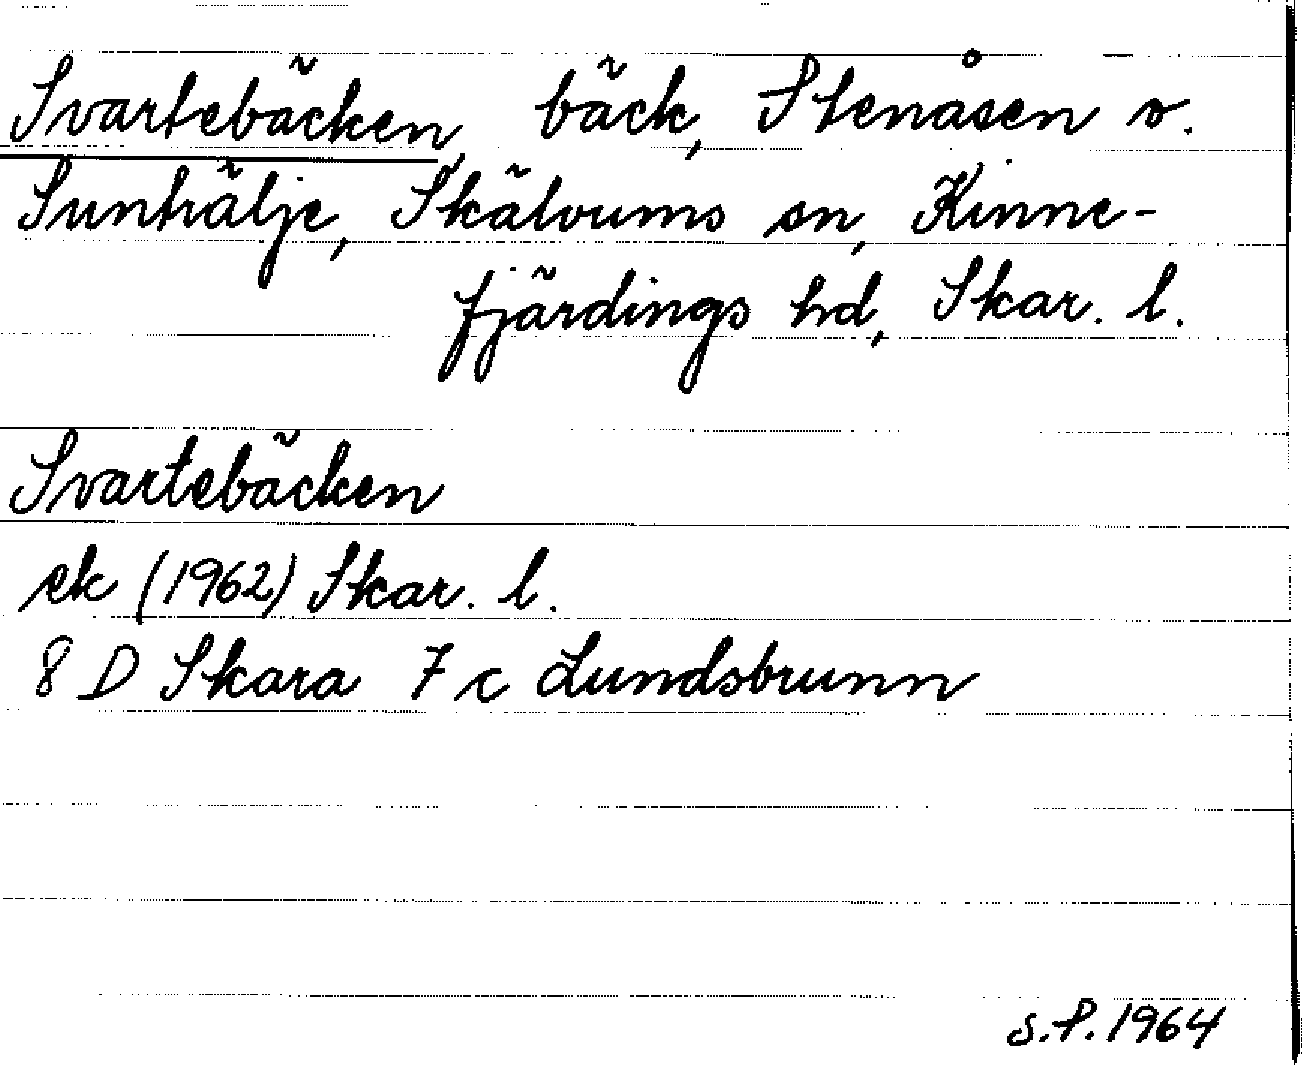 Svartebäcken, bäck, Stenåsen o.
Sunhälje, Skälvums sn, Kinne-
fjärdings hd, Skar. l.
Svartebäcken
ek (1962) Skar. l.
8 D Skara 7 c Lundsbrunn
S.P. 1964